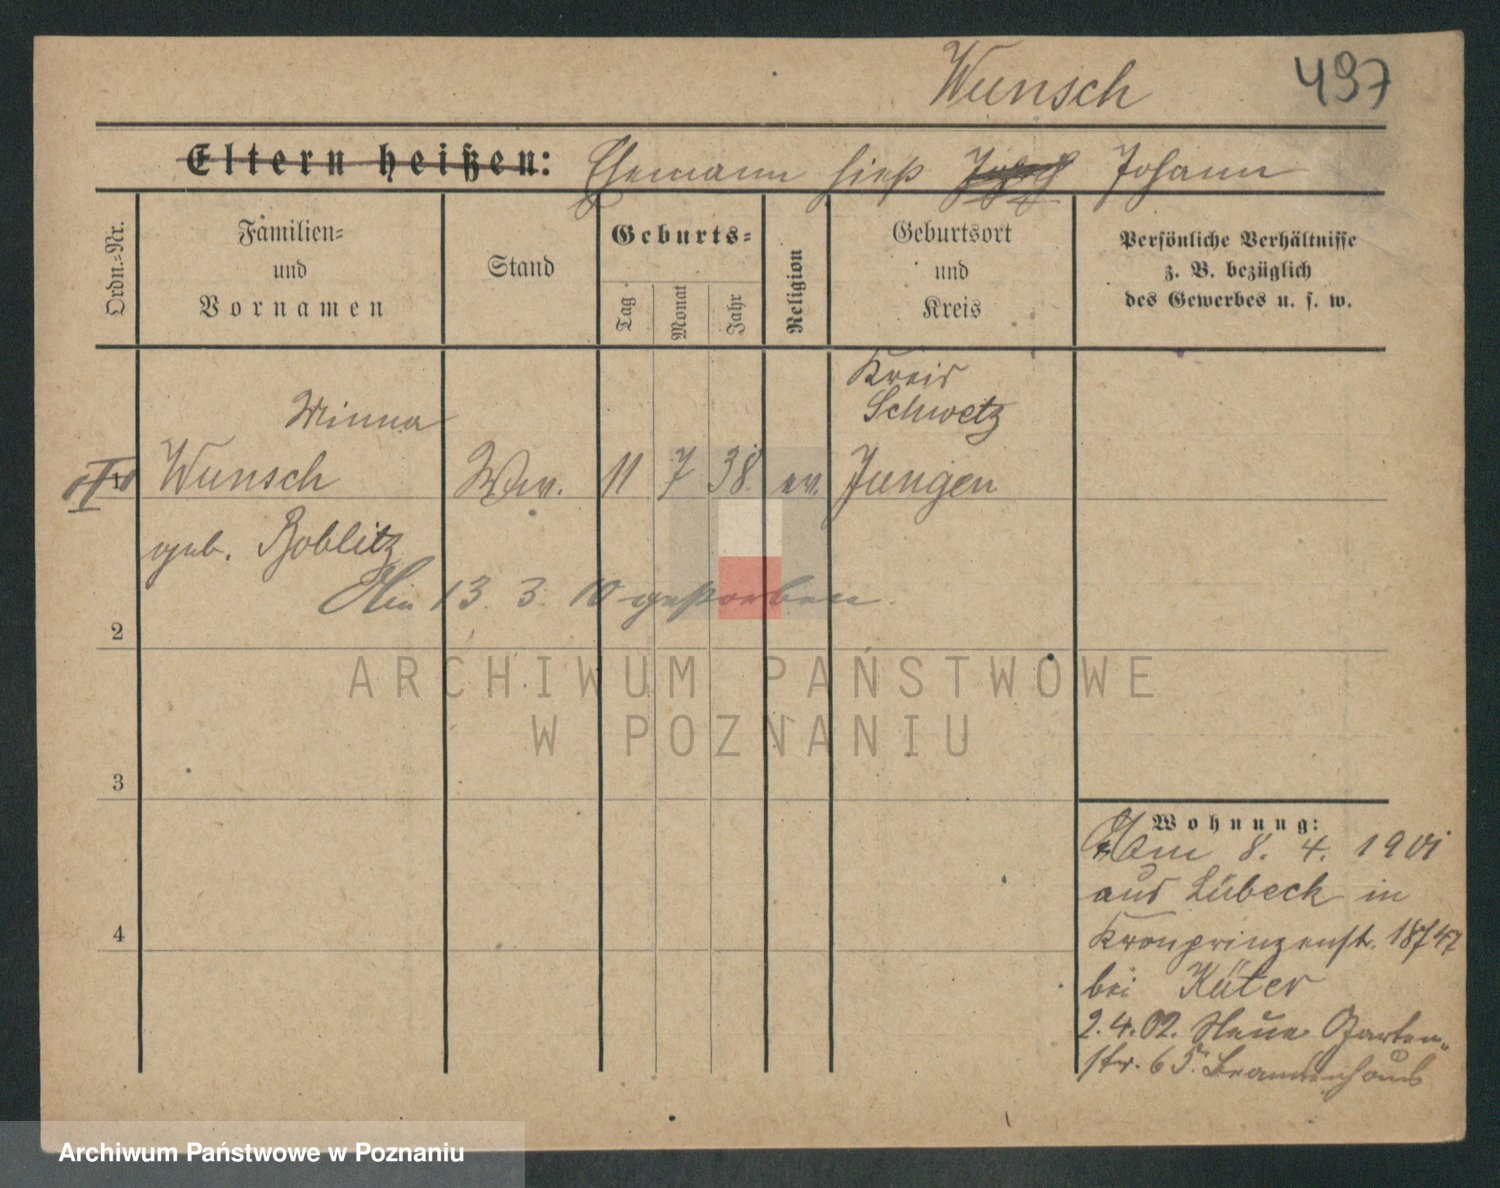 Wunsch 497
Eltern heißen: Ehemann hieß Johann
Ordn.-Nr.
Familien-
und
Vornamen
Stand
Geburts-
Tag
Monat
Jahr
Religion
Geburtsort
und
Kreis
Persönliche Verhältnisse
z. B. bezüglich
des Gewerbes u. s. w.
Kreis
Schwetz
Minna
1 Wunsch Wwe. 11 7 38 ev. Jungen
geb. Boblitz
Am 13. 3. 10 gestorben.
2
ARCHIWUM PAŃSTWOWE
W POZNANIU
3
4
Wohnung:
Am 8. 4. 1901
aus Lübeck in
Kronprinzenstr.
bei Küter
2. 4. 02. Neue Garten-
str. 65.
Archiwum Państwowe w Poznaniu